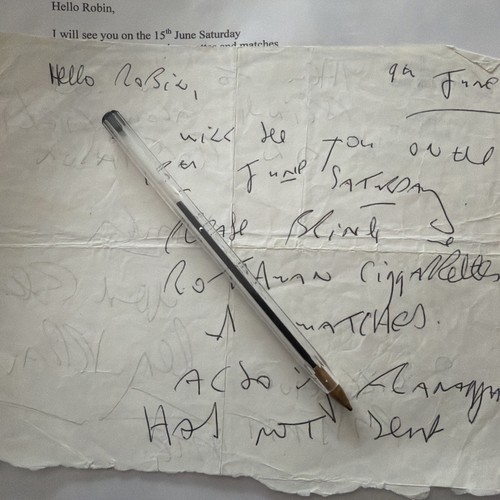 Hello Robin,
I will see you on the 15th June Saturday
and matches
Hello Robin,
9th June
will see you on the
June SATURDAY.
Please Bring me
ROTHMAN Ciggarettes
& MATCHES.
ALSO
HAS NOT Sent